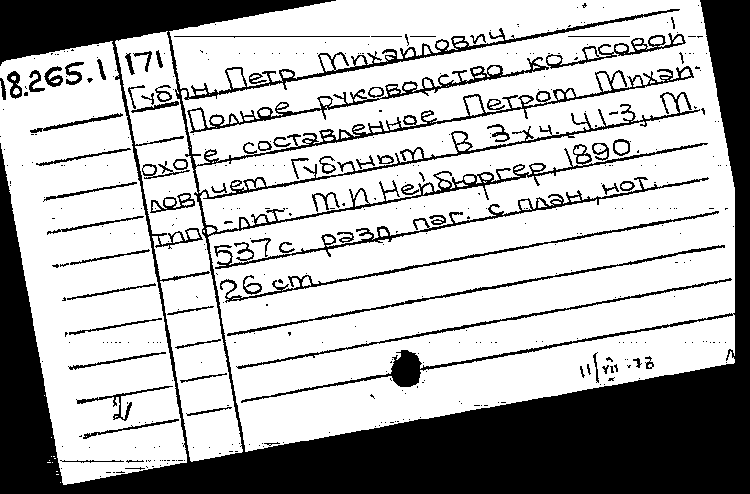 18.265.1. 171
Губин, Петр Михайлович.
Полное руководство ко псовой
охоте, составленное Петром Михай-
ловичем Губиным. В 3-х ч. Ч.1-3. М.,
типо-лит. М.И. Нейбюргер, 1890.
537 с. разд. паг. с план., нот.
26 cm.
11/VII-73